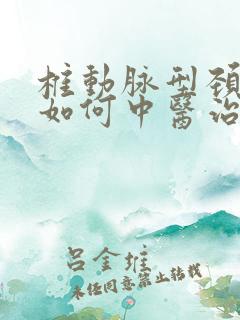 椎動脉型頚
如何中醫治
呂金堆
未经同意禁止转载